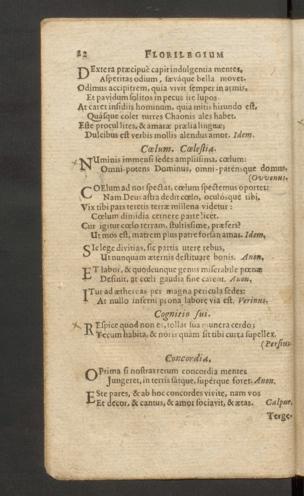 22 FLORILEGIUM
DExtera præcipuè capit indulgentia mentes,
Asperitas odium, sævaque bella movet.
Odimus accipitrem, quia vivit semper in armis,
Et pavidum solitos in pecus ire lupos.
At caret insidiis hominum, quia mitis hirundo est,
Quasque colet turres Chaonis ales habet.
Este procul lites, & amaræ prælia linguæ;
Dulcibus est verbis mollis alendus amor. Idem.
Cœlum. Cœlestia.
NUminis immensi sedes amplissima, cœlum:
Omni-potens Dominus, omni-patémque domus.
(Owenus.
COElum ad nos spectat, cœlum spectemus oportet:
Nam Deus astra dedit cœlo, oculosque tibi,
Vix tibi pars teretis terræ millena videtur:
Cœlum dimidia cernere parte licet.
Cur igitur cœlo terram, stultissime, præfers?
Ut mos est, matrem plus patre forsan amas. Idem.
SIc lege divitias, sic partis utere rebus,
Ut nunquam æternis destituare bonis. Anon.
ET labor, & quodcunque genus miserabile pœnæ
Desinit, at cœli gaudia fine carent. Anon.
ITur ad æthereas per magna pericula sedes:
At nullo inferni prona labore via est. Verinus.
Cognitio sui.
REspice quod non es, tollat sua munera cerdo;
Tecum habita, & noris quam sit tibi curta supellex.
(Persius.
Concordia.
O Prima si nostras rerum concordia mentes
Jungeret, in terris satque, supérque foret. Anon.
ESte pares, & ab hoc concordes vivite, nam vos
Et decor, & cantus, & amor sociavit, & ætas. Calpur.
Terge-